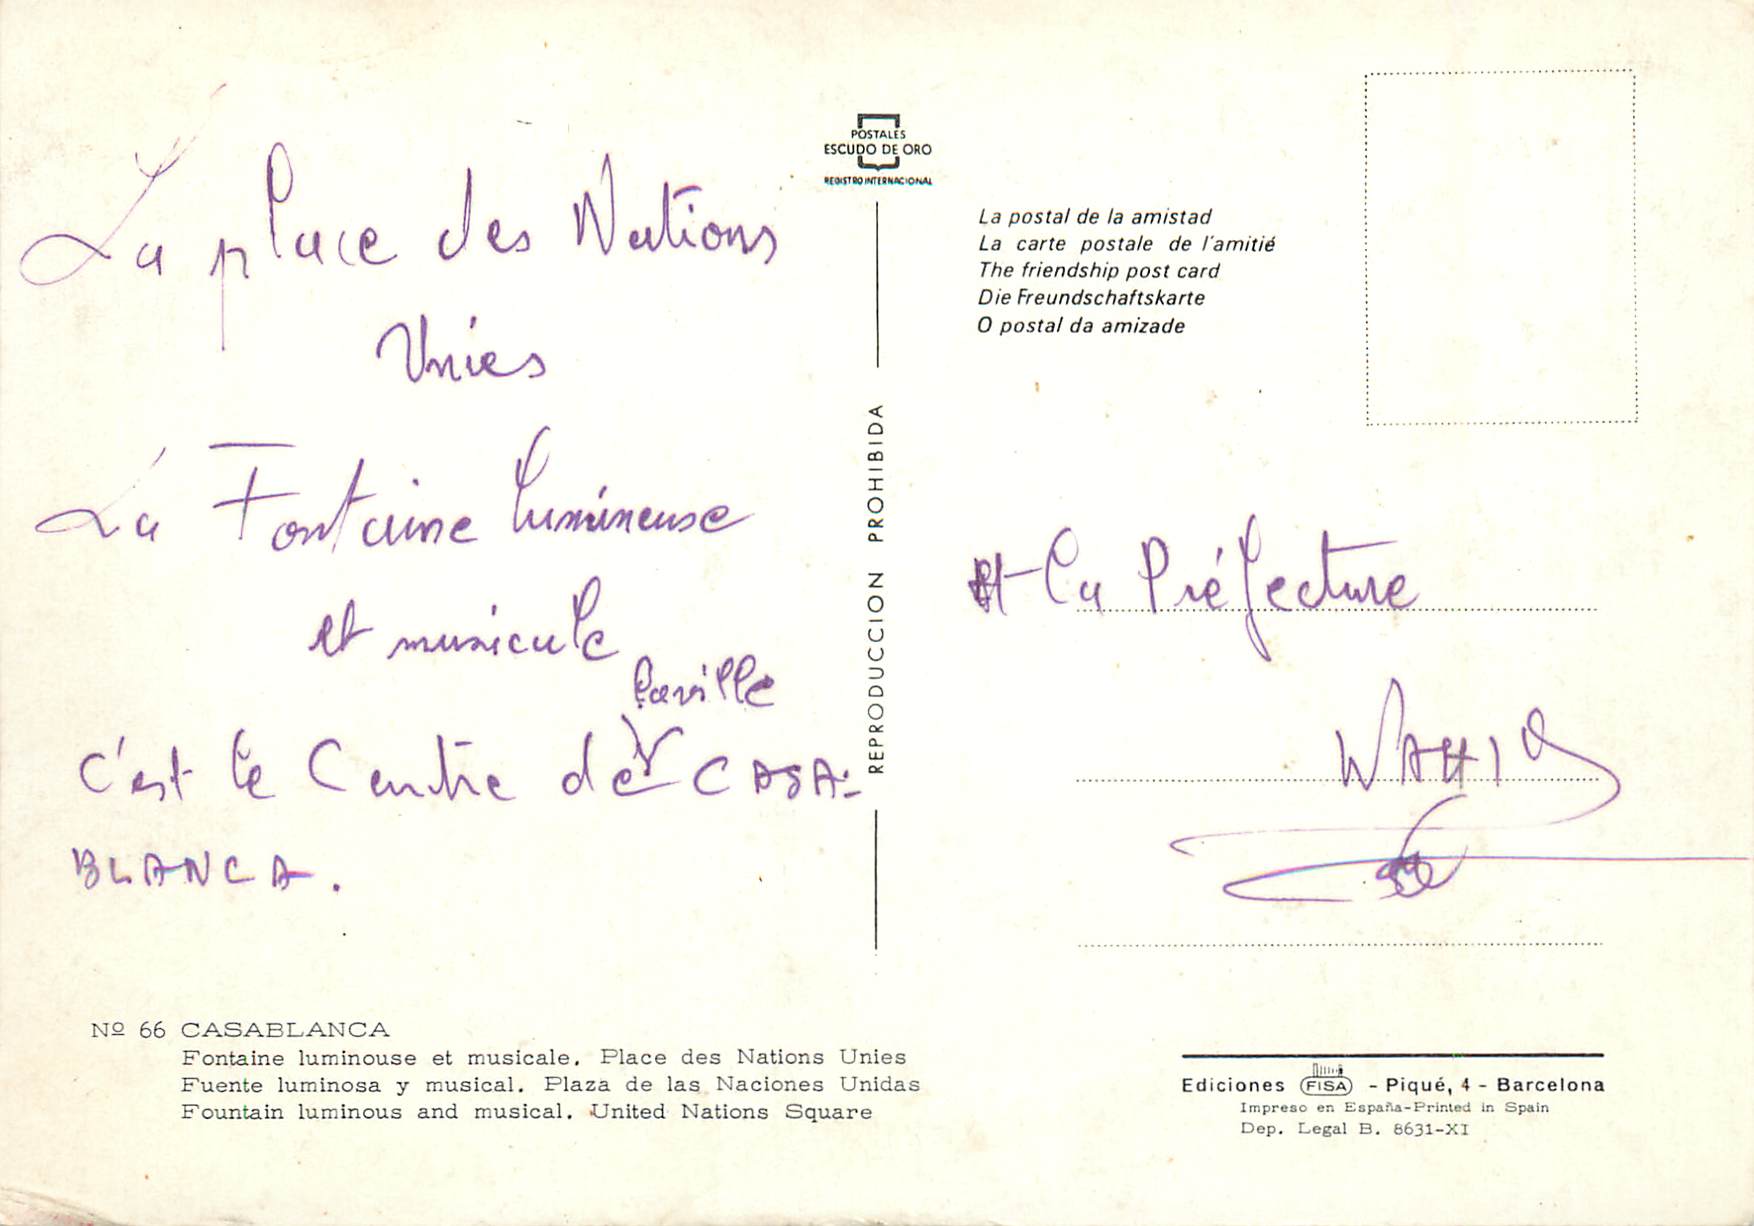 La place des Nations
Unies
La Fontaine lumineuse
et musicale
la ville
c'est le Centre de CASA-
BLANCA.
POSTALES
ESCUDO DE ORO
REGISTRO INTERNACIONAL
REPRODUCCION PROHIBIDA
La postal de la amistad
La carte postale de l'amitié
The friendship post card
Die Freundschaftskarte
O postal da amizade
et la Préfecture
WAHID
Nº 66 CASABLANCA
Fontaine luminouse et musicale. Place des Nations Unies
Fuente luminosa y musical. Plaza de las Naciones Unidas
Fountain luminous and musical. United Nations Square
Ediciones FISA - Piqué, 4 - Barcelona
Impreso en España-Printed in Spain
Dep. Legal B. 8631-XI